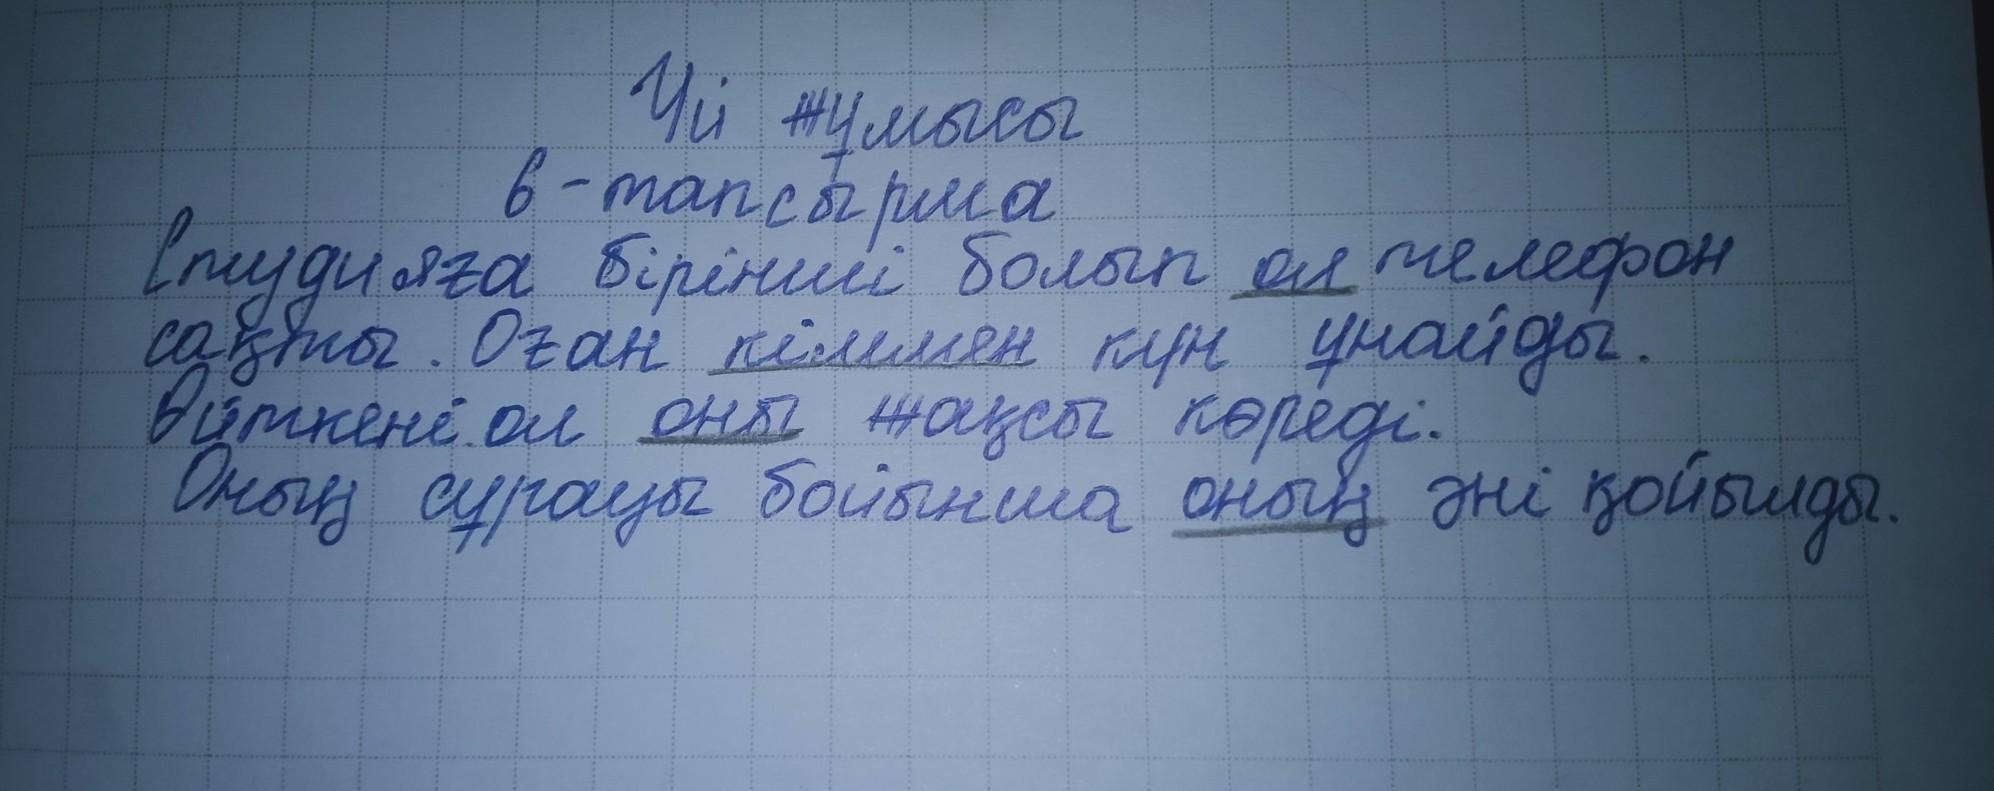 Үй жұмысы
6-тапсырма
Студияға бірінші болып ол телефон
сақты. Оған кіммен күн ұнайды.
Өйткені ол оны жақсы көреді.
Оның сұрауы бойынша оның әні қойылды.